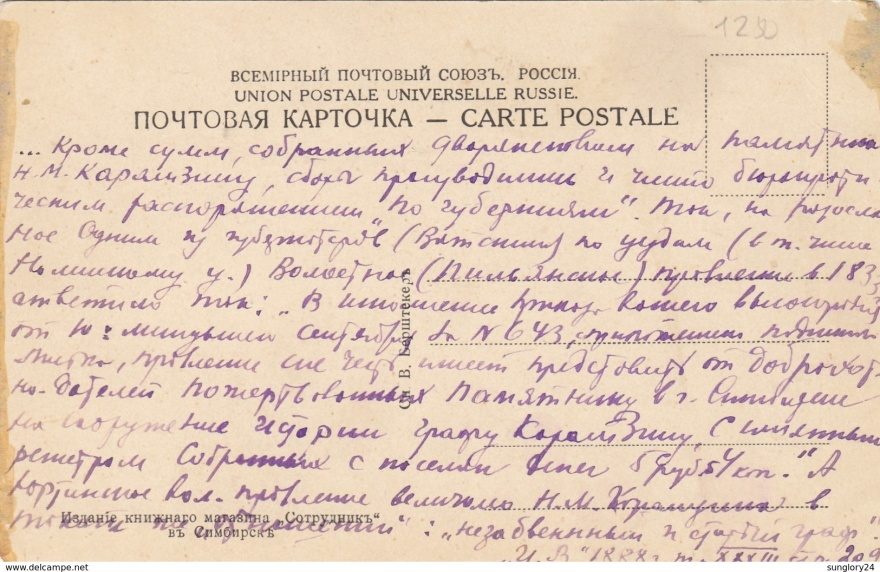 1250
ВСЕМІРНЫЙ ПОЧТОВЫЙ СОЮЗЪ. РОССІЯ.
UNION POSTALE UNIVERSELLE RUSSIE.
ПОЧТОВАЯ КАРТОЧКА — CARTE POSTALE
... Кроме сумм, собранных дворянством на памятник
Н.М. Карамзину, сборы производились и чисто бюрократи-
ческим распоряжением "по губерниям". Так, на разослан
ное одним из губернаторов (Вятским) по уездам (в т. числе
у.) Волостное правление в 183
ответило так: "В исполнение приказа вашего высокородия
от 10 минувшего сентября за N 643, приложением подписн
листка, правление сие честь имеет представить от доброхот
но-дателей пожертвованных памятнику в г. Симбирске
на сооружение истории графу Карамзину, с
регистром собранных с поселян денег 5 руб. 54 коп." А
вол. правление величало Н.М. Карамзина в
"незабвенным и старый граф".
"И.В." 1888 г. т. XXXIII стр. 209
Сн. В. Берштекеръ
Изданіе книжнаго магазина „Сотрудникъ"
въ Симбирскѣ
www.delcampe.net
sunglory24